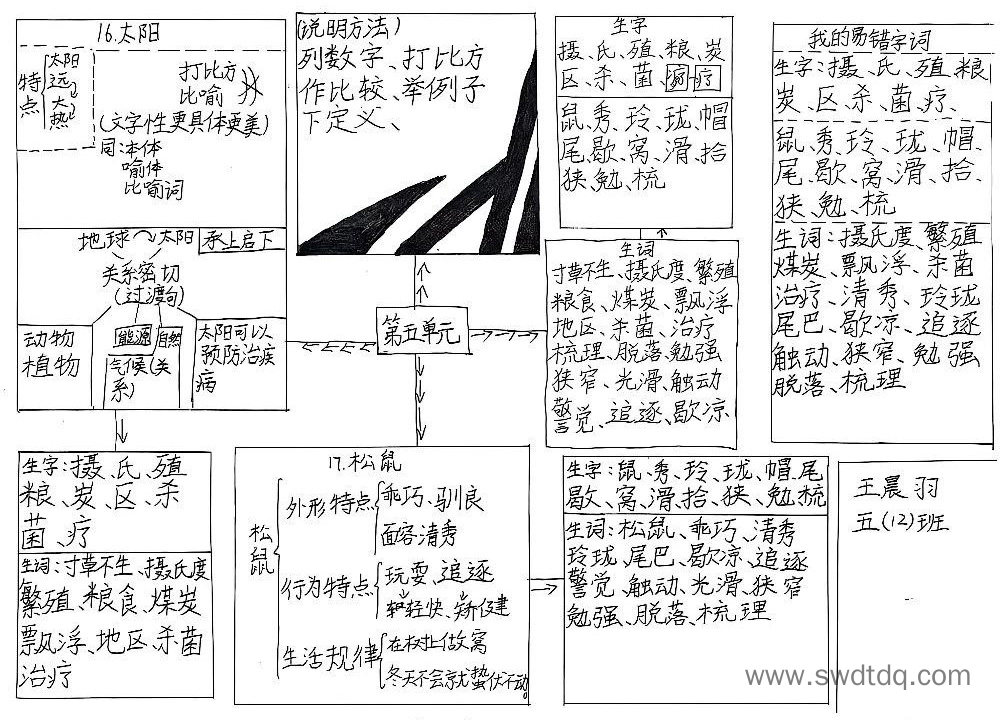 16.太阳
特点
太阳
远
大
热
打比方
比喻
(文字性更具体更美)
同:本体
喻体
比喻词
地球 太阳 承上启下
关系密切
(过渡句)
动物
植物
能源 自然
气候(关
系)
太阳可以
预防治疾
病
(说明方法)
列数字、打比方
作比较、举例子
下定义、
生字
摄、氏、殖、粮、炭
区、杀、菌、疗
鼠、秀、玲、珑、帽
尾、歇、窝、滑、拾
狭、勉、梳
我的易错字词
生字:摄、氏、殖、粮
炭、区、杀、菌、疗、
鼠、秀、玲、珑、帽、
尾、歇、窝、滑、拾、
狭、勉、梳
生词:摄氏度、繁殖
煤炭、飘浮、杀菌
治疗、清秀、玲珑
尾巴、歇凉、追逐
触动、狭窄、勉强
脱落、梳理
第五单元
生词
寸草不生、摄氏度、繁殖
粮食、煤炭、飘浮
地区、杀菌、治疗
梳理、脱落、勉强
狭窄、光滑、触动
警觉、追逐、歇凉、
生字:摄、氏、殖
粮、炭、区、杀
菌、疗
生词:寸草不生、摄氏度
繁殖、粮食、煤炭
飘浮、地区、杀菌
治疗
17.松鼠
松鼠
外形特点
乖巧、驯良
面容清秀
行为特点
玩耍、追逐
轻快、矫健
生活规律
在树上做窝
冬天不会就蛰伏不动。
生字:鼠、秀、玲、珑、帽、尾
歇、窝、滑、拾、狭、勉、梳
生词:松鼠、乖巧、清秀
玲珑、尾巴、歇凉、追逐
警觉、触动、光滑、狭窄
勉强、脱落、梳理
王晨羽
五(12)班
www.swdtdq.com